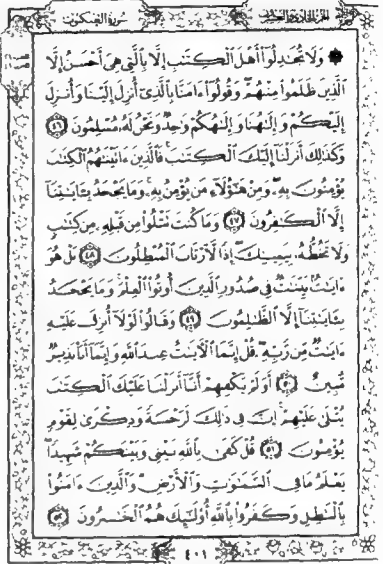 الجزء الحادي والعشرون سورة العنكبوت
۞ وَلَا تُجَٰدِلُوٓا۟ أَهْلَ ٱلْكِتَٰبِ إِلَّا بِٱلَّتِى هِىَ أَحْسَنُ إِلَّا
ٱلَّذِينَ ظَلَمُوا۟ مِنْهُمْ ۖ وَقُولُوٓا۟ ءَامَنَّا بِٱلَّذِىٓ أُنزِلَ إِلَيْنَا وَأُنزِلَ
إِلَيْكُمْ وَإِلَٰهُنَا وَإِلَٰهُكُمْ وَٰحِدٌ وَنَحْنُ لَهُۥ مُسْلِمُونَ ٤٦
وَكَذَٰلِكَ أَنزَلْنَآ إِلَيْكَ ٱلْكِتَٰبَ ۚ فَٱلَّذِينَ ءَاتَيْنَٰهُمُ ٱلْكِتَٰبَ
يُؤْمِنُونَ بِهِۦ ۖ وَمِنْ هَٰٓؤُلَآءِ مَن يُؤْمِنُ بِهِۦ ۚ وَمَا يَجْحَدُ بِـَٔايَٰتِنَآ
إِلَّا ٱلْكَٰفِرُونَ ٤٧ وَمَا كُنتَ تَتْلُوا۟ مِن قَبْلِهِۦ مِن كِتَٰبٍ
وَلَا تَخُطُّهُۥ بِيَمِينِكَ ۖ إِذًا لَّٱرْتَابَ ٱلْمُبْطِلُونَ ٤٨ بَلْ هُوَ
ءَايَٰتٌۢ بَيِّنَٰتٌ فِى صُدُورِ ٱلَّذِينَ أُوتُوا۟ ٱلْعِلْمَ ۚ وَمَا يَجْحَدُ
بِـَٔايَٰتِنَآ إِلَّا ٱلظَّٰلِمُونَ ٤٩ وَقَالُوا۟ لَوْلَآ أُنزِلَ عَلَيْهِ
ءَايَٰتٌ مِّن رَّبِّهِۦ ۖ قُلْ إِنَّمَا ٱلْءَايَٰتُ عِندَ ٱللَّهِ وَإِنَّمَآ أَنَا۠ نَذِيرٌ
مُّبِينٌ ٥٠ أَوَلَمْ يَكْفِهِمْ أَنَّآ أَنزَلْنَا عَلَيْكَ ٱلْكِتَٰبَ
يُتْلَىٰ عَلَيْهِمْ ۚ إِنَّ فِى ذَٰلِكَ لَرَحْمَةً وَذِكْرَىٰ لِقَوْمٍ
يُؤْمِنُونَ ٥١ قُلْ كَفَىٰ بِٱللَّهِ بَيْنِى وَبَيْنَكُمْ شَهِيدًا ۖ
يَعْلَمُ مَا فِى ٱلسَّمَٰوَٰتِ وَٱلْأَرْضِ ۗ وَٱلَّذِينَ ءَامَنُوا۟
بِٱلْبَٰطِلِ وَكَفَرُوا۟ بِٱللَّهِ أُو۟لَٰٓئِكَ هُمُ ٱلْخَٰسِرُونَ ٥٢
٤٠١